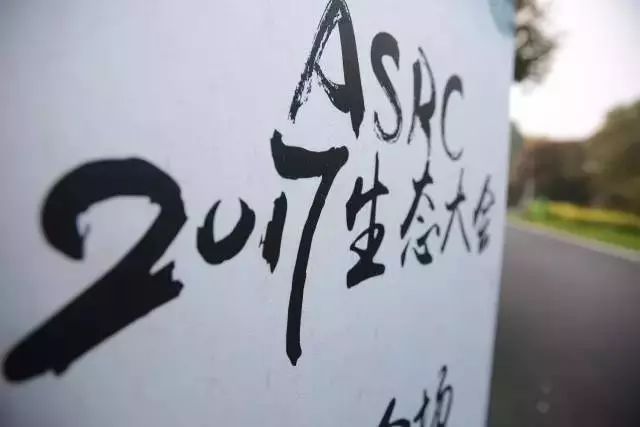 ASRC
2017生态大会